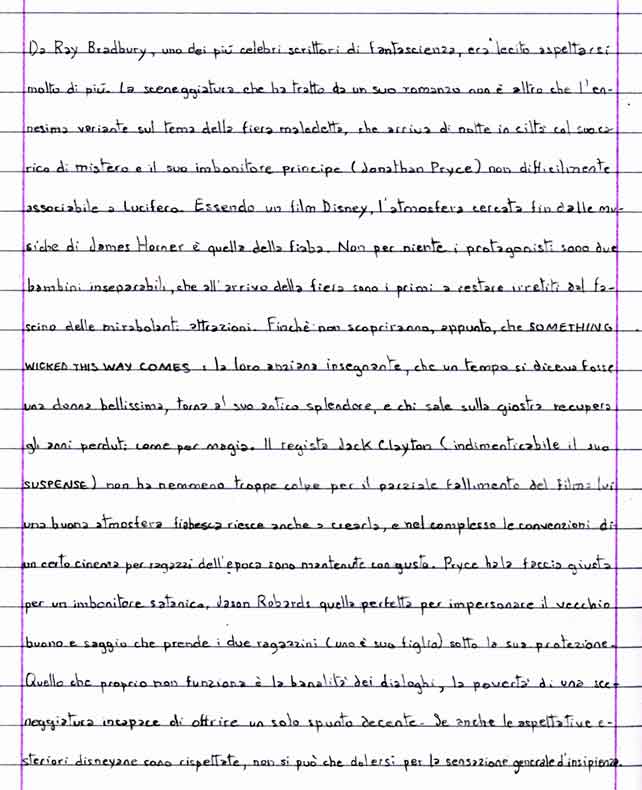 Da Ray Bradbury, uno dei più celebri scrittori di fantascienza, era lecito aspettarsi
molto di più. La sceneggiatura che ha tratto da un suo romanzo non è altro che l'en-
nesima variante sul tema della fiera maledetta, che arriva di notte in città col suo ca-
rico di mistero e il suo imbonitore principe (Jonathan Pryce) non difficilmente
associabile a Lucifero. Essendo un film Disney, l'atmosfera cercata fin dalle mu-
siche di James Horner è quella della fiaba. Non per niente i protagonisti sono due
bambini inseparabili, che all'arrivo della fiera sono i primi a restare irretiti dal fa-
scino delle mirabolanti attrazioni. Finchè non scopriranno, appunto, che SOMETHING
WICKED THIS WAY COMES: la loro anziana insegnante, che un tempo si diceva fosse
una donna bellissima, torna al suo antico splendore, e chi sale sulla giostra recupera
gli anni perduti come per magia. Il regista Jack Clayton (indimenticabile il suo
SUSPENSE) non ha nemmeno troppe colpe per il parziale fallimento del film: lui
una buona atmosfera fiabesca riesce anche a crearla, e nel complesso le convenzioni di
un certo cinema per ragazzi dell'epoca sono mantenute con gusto. Pryce ha la faccia giusta
per un imbonitore satanico, Jason Robards quella perfetta per impersonare il vecchio
buono e saggio che prende i due ragazzini (uno è suo figlio) sotto la sua protezione.
Quello che proprio non funziona è la banalità dei dialoghi, la povertà di una sce-
neggiatura incapace di offrire un solo spunto decente. Se anche le aspettative e-
steriori disneyane sono rispettate, non si può che dolersi per la sensazione generale d'insipienza.